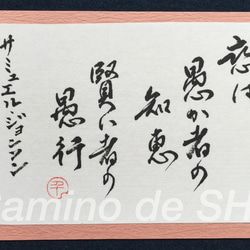 恋は
愚か者の
知恵
賢い者の
愚行
サミュエル・ジョンソン
Camino de SH